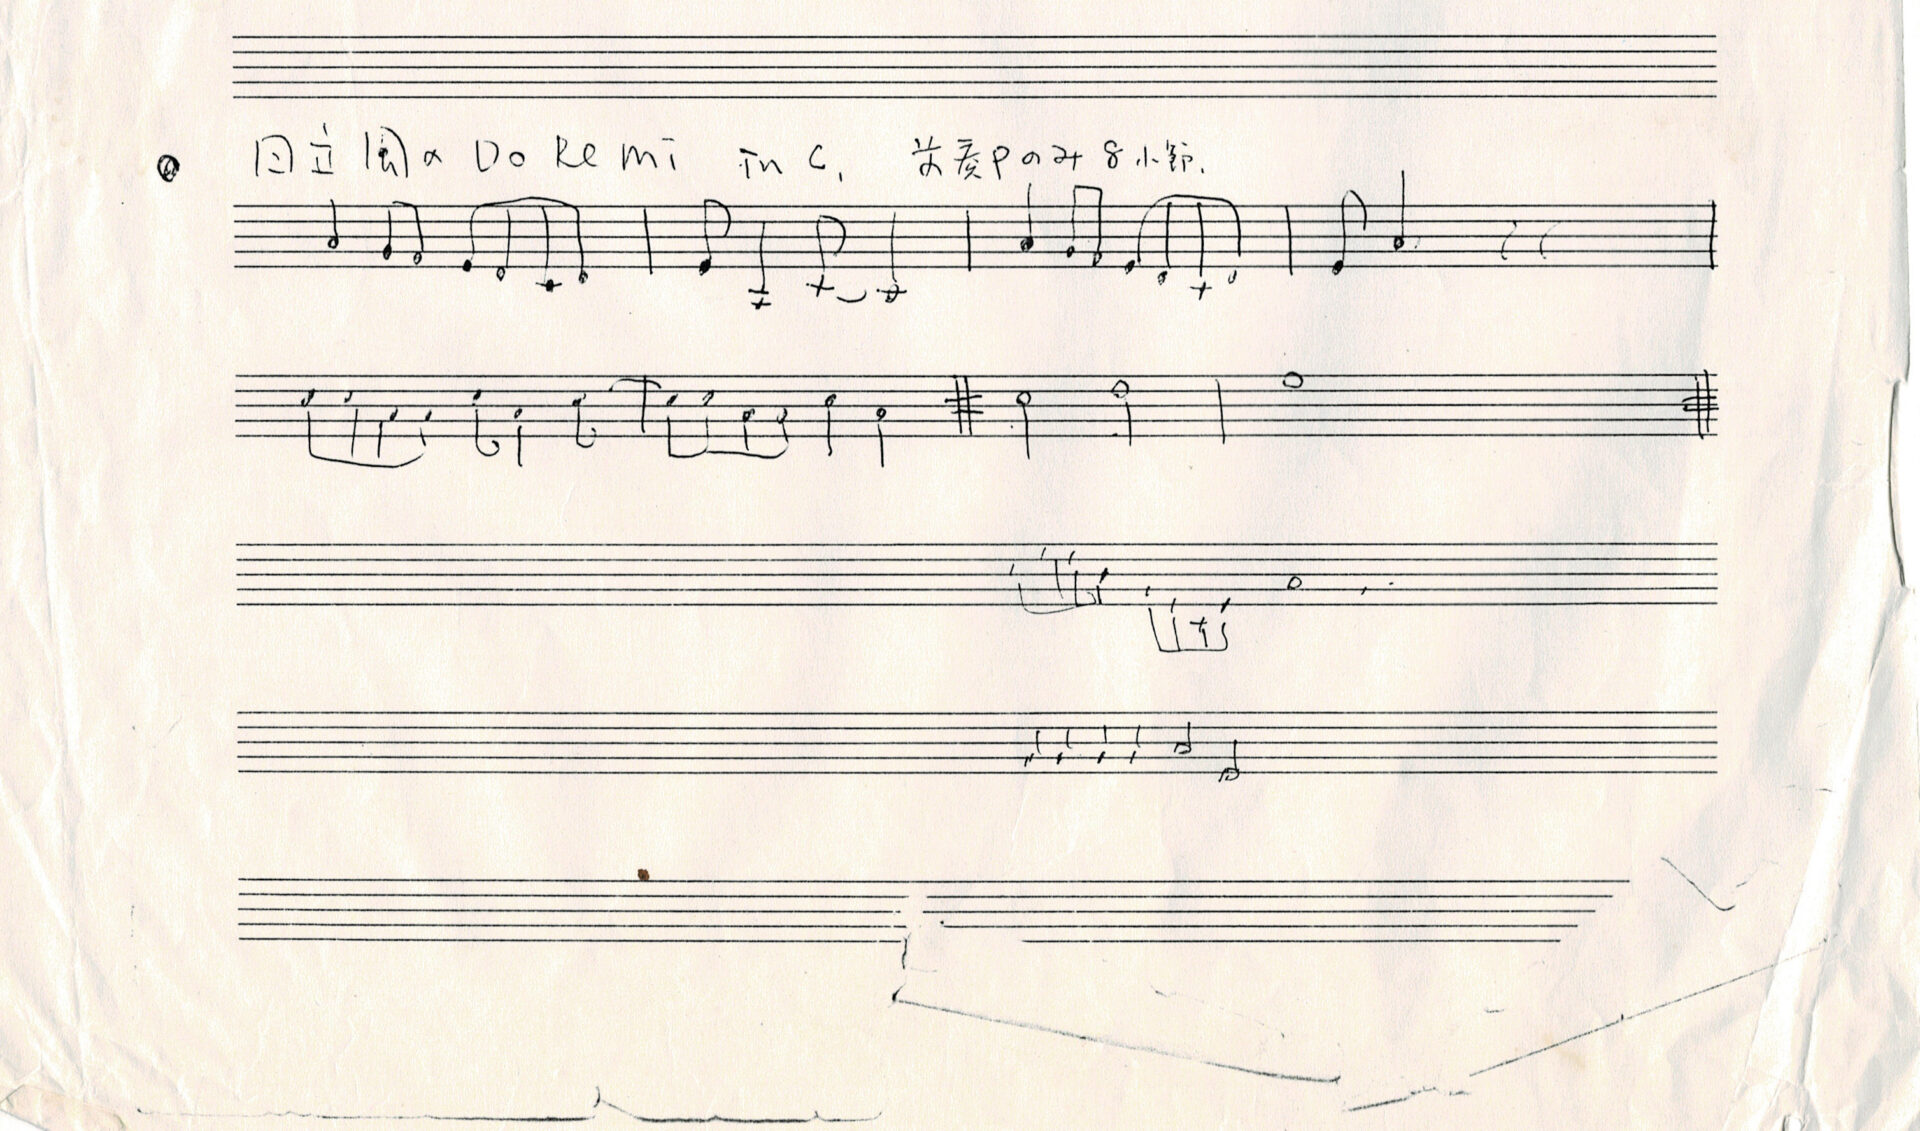 日立圏のDo Re mi in C. 前奏Pのみ8小節.